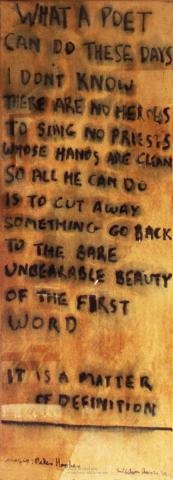 WHAT A POET
CAN DO THESE DAYS
I DON'T KNOW
THERE ARE NO HEROES
TO SING NO PRIESTS
WHOSE HANDS ARE CLEAN
SO ALL HE CAN DO
IS TO CUT AWAY
SOMETHING GO BACK
TO THE BARE
UNBEARABLE BEAUTY
OF THE FIRST
WORD
IT IS A MATTER
OF DEFINITION
Peter Hooper